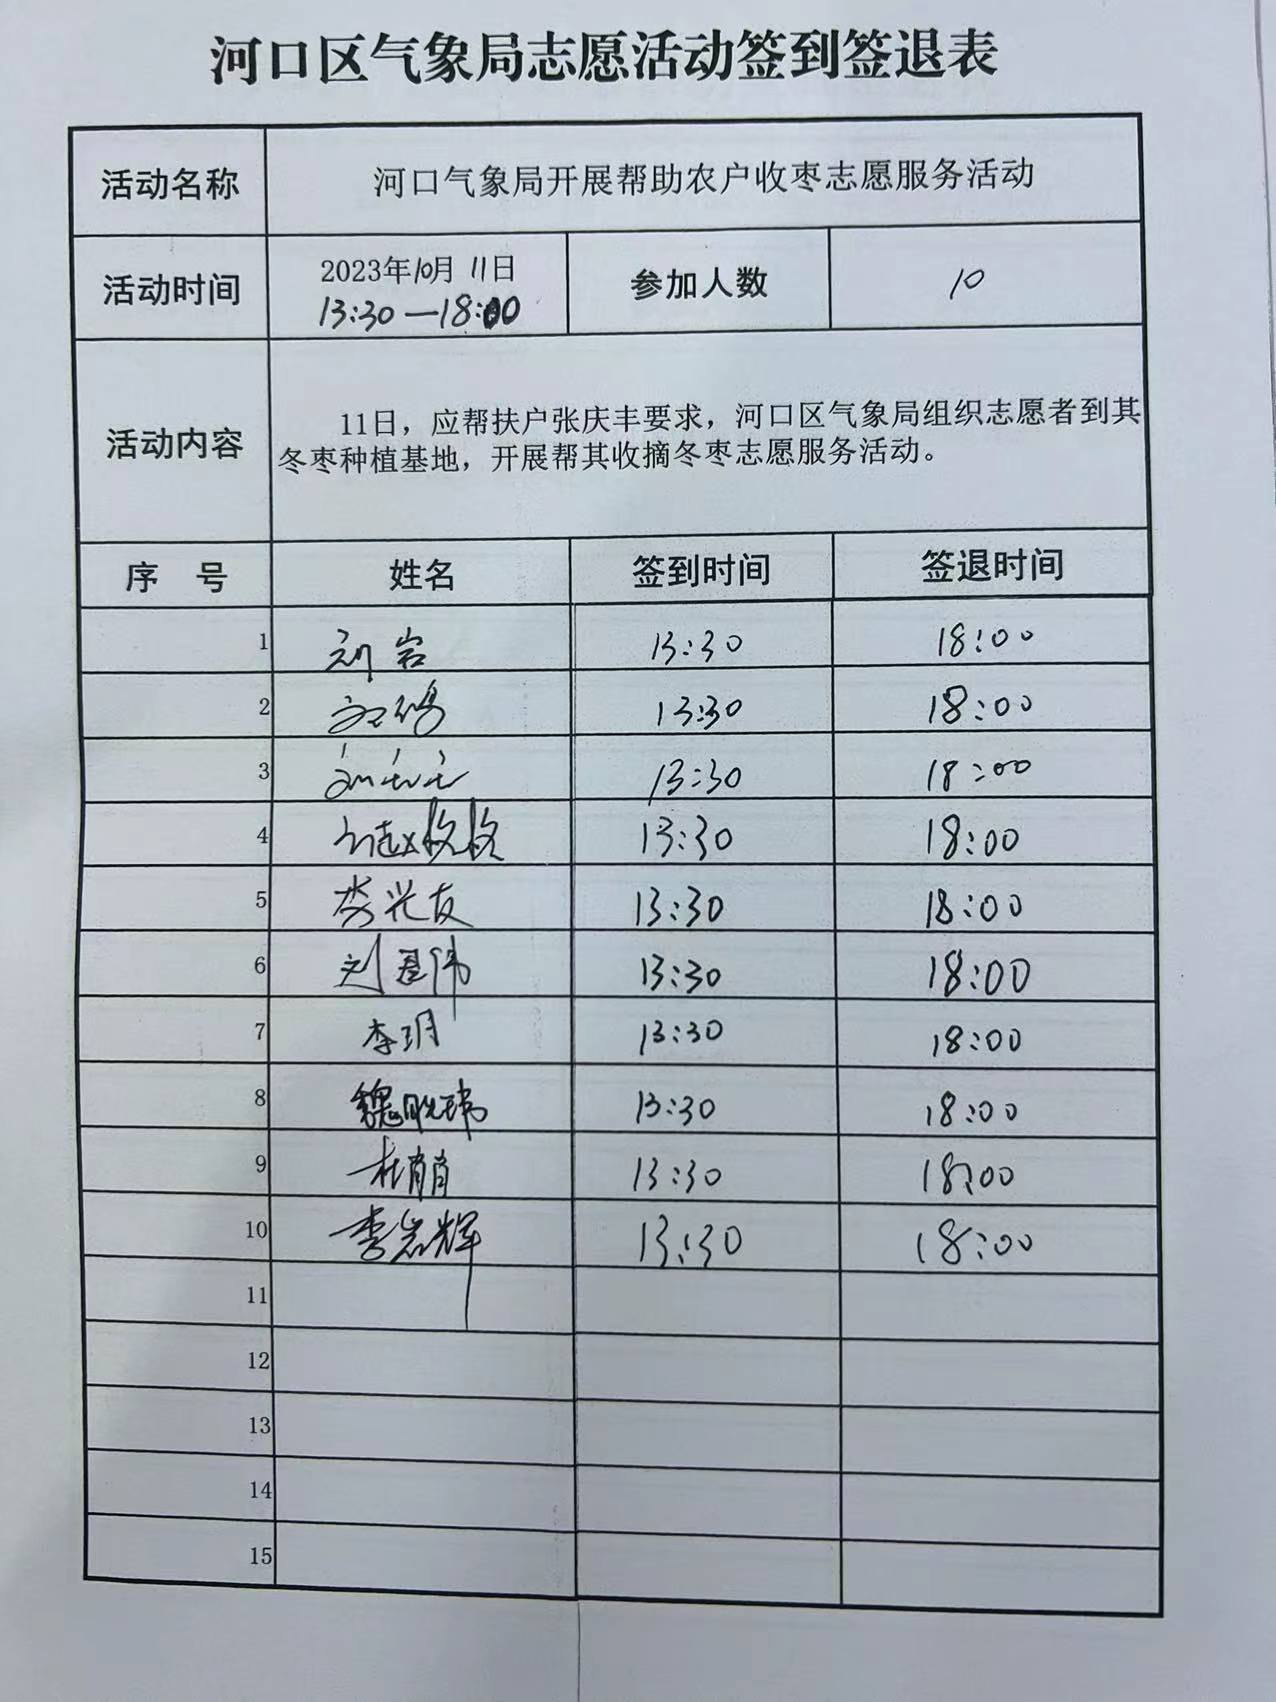 河口区气象局志愿活动签到签退表
活动名称 河口气象局开展帮助农户收枣志愿服务活动
活动时间 2023年10月11日 13:30—18:00 参加人数 10
活动内容 11日，应帮扶户张庆丰要求，河口区气象局组织志愿者到其
冬枣种植基地，开展帮其收摘冬枣志愿服务活动。
序 号 姓名 签到时间 签退时间
1 刘岩 13:30 18:00
2 13:30 18:00
3 13:30 18:00
4 13:30 18:00
5 李兴友 13:30 18:00
6 刘 伟 13:30 18:00
7 李玥 13:30 18:00
8 魏 玮 13:30 18:00
9 杜肖肖 13:30 18:00
10 李岩辉 13:30 18:00
11
12
13
14
15